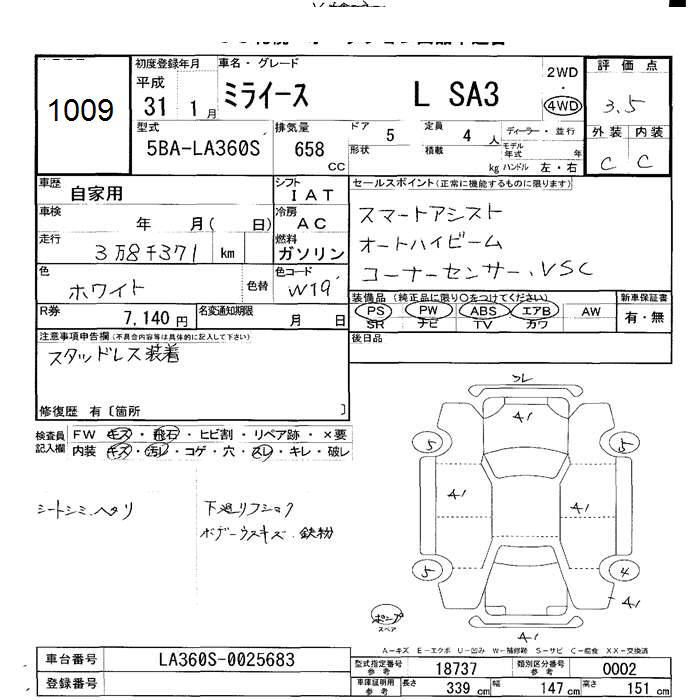 1009
初度登録年月
平成
31 1月
車名・グレード
ミライース L SA3
2WD
・
4WD
評価点
3.5
外装 内装
C C
型式
5BA-LA360S
排気量
658 CC
ドア 5
定員 4 人
ディーラー・並行
形状
積載 kg
モデル年式 年
ハンドル 左・右
車歴 自家用
シフト I AT
車検 年 月( 日)
冷房 AC
走行 3万8千371 km
燃料 ガソリン
色 ホワイト 色替
色コード W19
R券 7,140円
名変通知期限 月 日
セールスポイント(正常に機能するものに限ります)
スマートアシスト
オートハイビーム
コーナーセンサー、VSC
装備品(純正品に限り○をつけてください)
PS PW ABS エアB AW
SR ナビ TV カワ
新車保証書
有・無
後日品
注意事項申告欄(不具合内容等は具体的に記入して下さい)
スタッドレス装着
修復歴 有〔箇所 〕
検査員記入欄
FW キズ・飛石・ヒビ割・リペア跡・×要
内装 キズ・汚レ・コゲ・穴・スレ・キレ・破レ
シートシミ、ヘタリ
下廻リフショク
ボデーウスキズ・鉄粉
A1
5 5
A1 A1
5 4
A1
A1
スペア
A－キズ E－エクボ U－凹み W－補修跡 S－サビ C－腐食 XX－交換済
車台番号 LA360S-0025683
登録番号
型式指定番号 参考 18737
類別区分番号 参考 0002
車庫証明用 参考 長さ 339 cm 幅 147 cm 高さ 151 cm